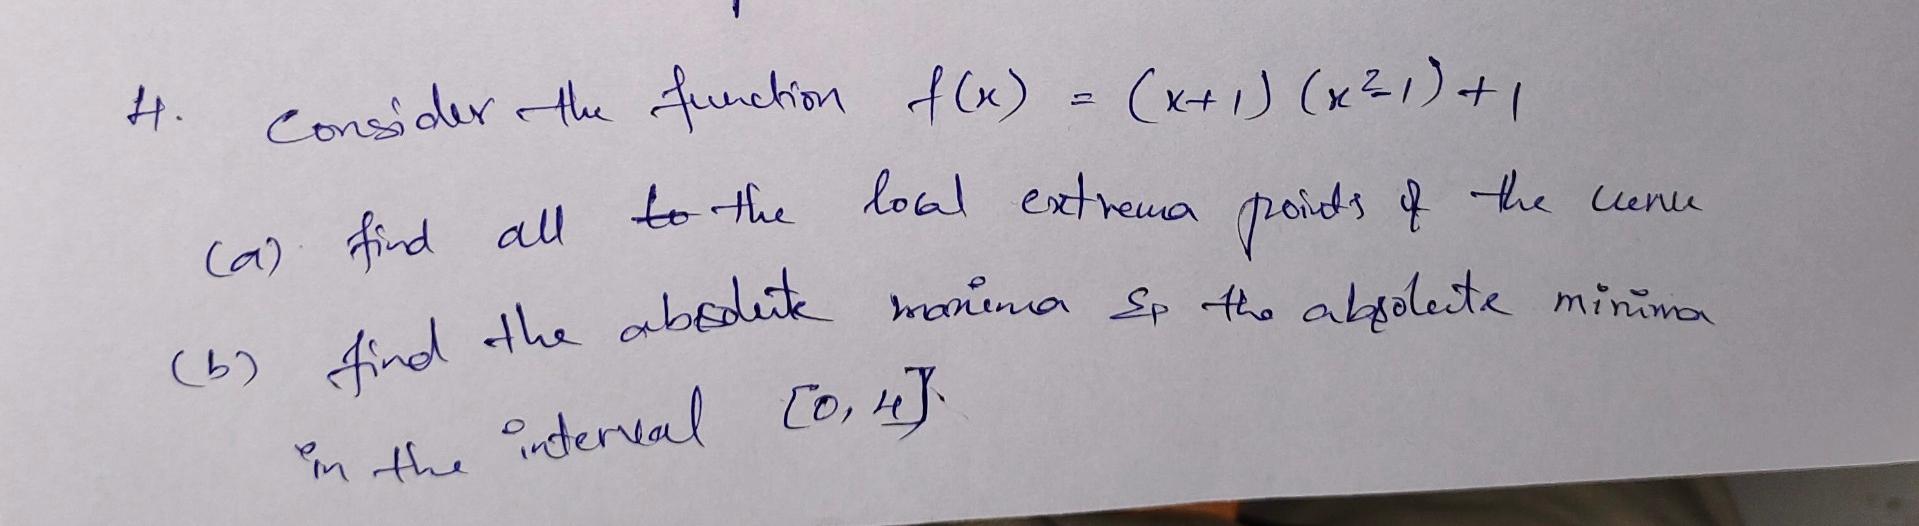 4. Consider the function f(x) = (x+1) (x²-1) + 1
(a) find all to the local extrema points of the curve
(b) find the absolute maxima & the absolute minima
in the interval [0, 4].